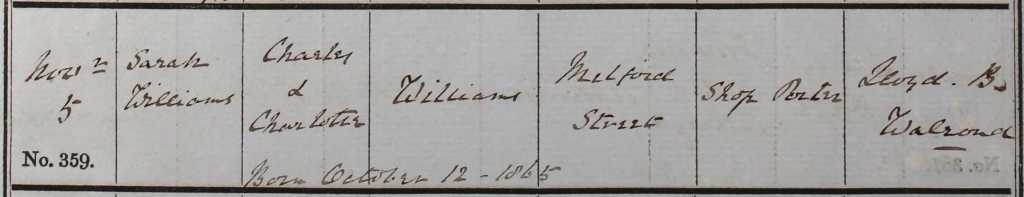 Novr
5
No. 359.
Sarah
Williams
Charles
&
Charlotte
Williams
Milford
Street
Shop Porter
Lloyd. B.
Walrond
Born October 12 - 1865